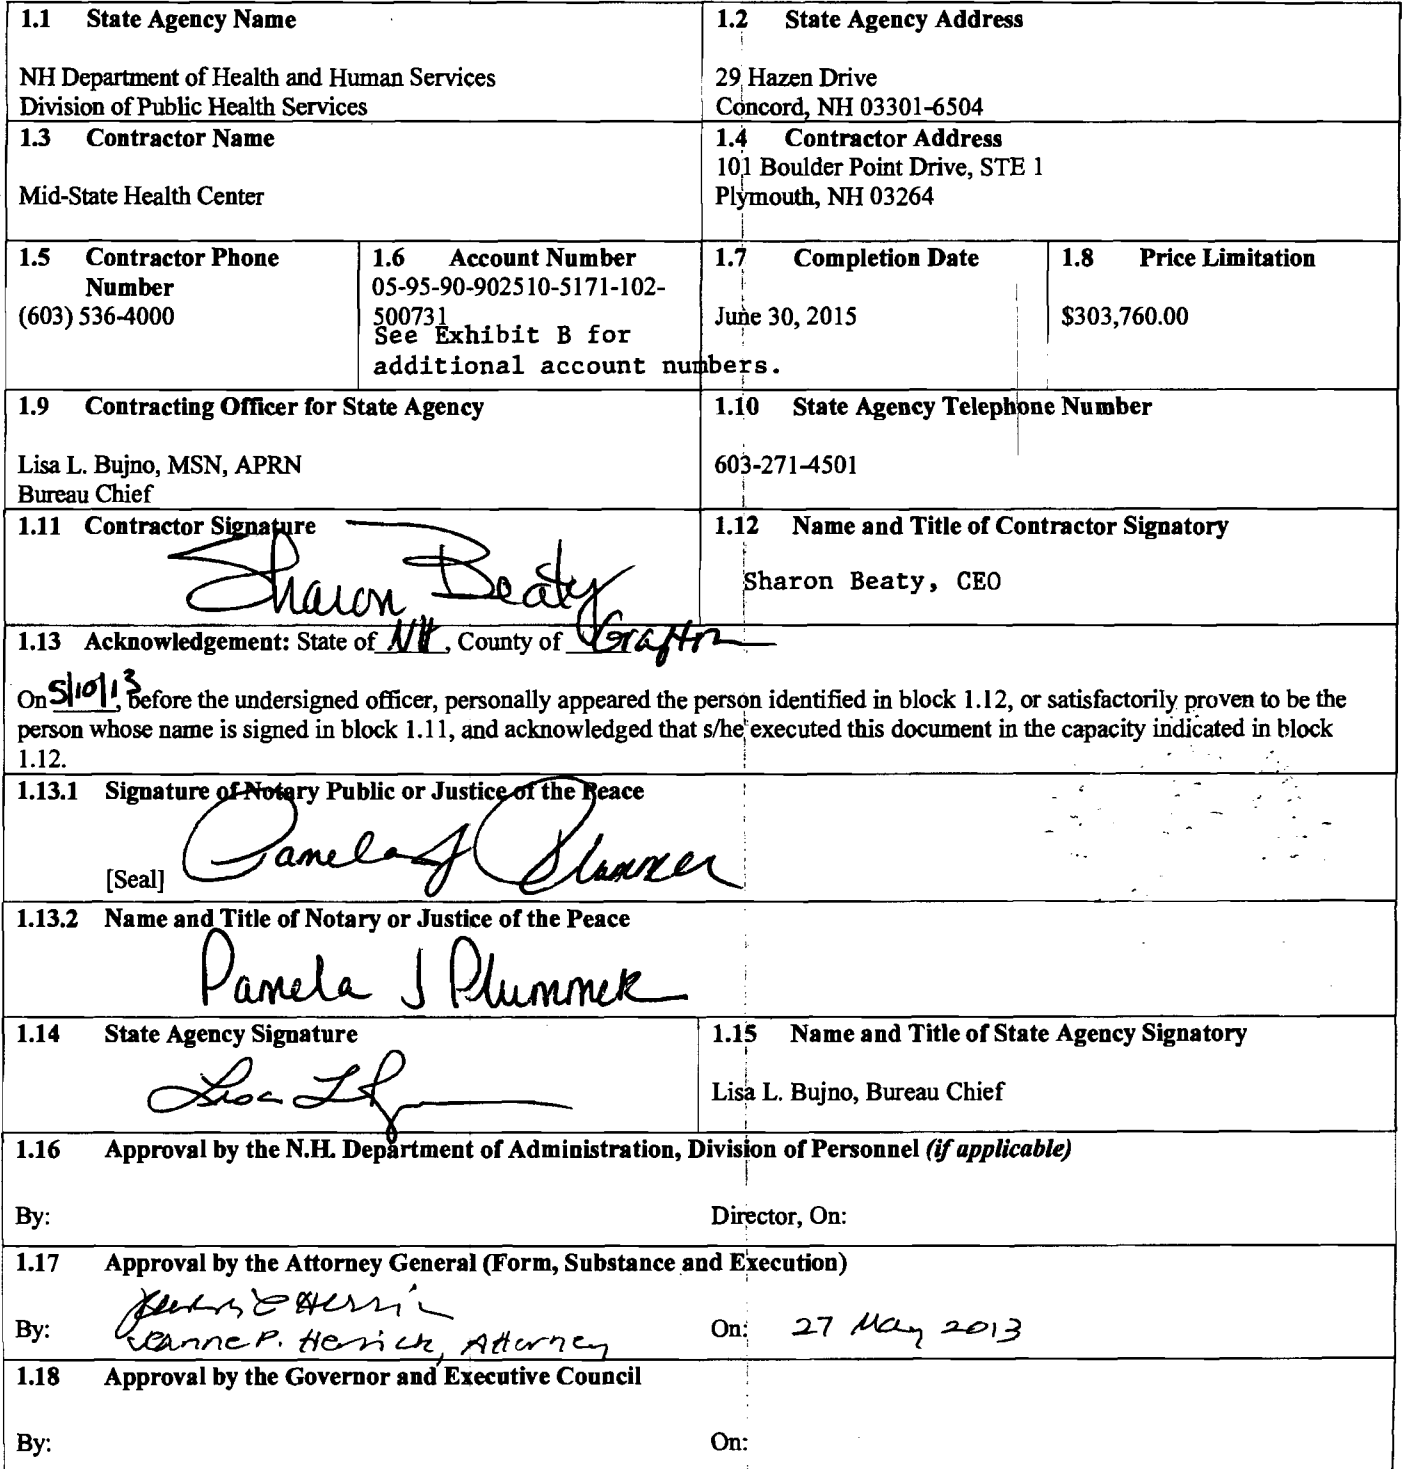 1.1 State Agency Name
1.2 State Agency Address
NH Department of Health and Human Services
Division of Public Health Services
29 Hazen Drive
Concord, NH 03301-6504
1.3 Contractor Name
1.4 Contractor Address
Mid-State Health Center
101 Boulder Point Drive, STE 1
Plymouth, NH 03264
1.5 Contractor Phone
Number
(603) 536-4000
1.6 Account Number
05-95-90-902510-5171-102-
500731
See Exhibit B for
additional account numbers.
1.7 Completion Date
June 30, 2015
1.8 Price Limitation
$303,760.00
1.9 Contracting Officer for State Agency
Lisa L. Bujno, MSN, APRN
Bureau Chief
1.10 State Agency Telephone Number
603-271-4501
1.11 Contractor Signature
Sharon Beaty
1.12 Name and Title of Contractor Signatory
Sharon Beaty, CEO
1.13 Acknowledgement: State of NH, County of Grafton
On 5/10/13, before the undersigned officer, personally appeared the person identified in block 1.12, or satisfactorily proven to be the
person whose name is signed in block 1.11, and acknowledged that s/he executed this document in the capacity indicated in block
1.12.
1.13.1 Signature of Notary Public or Justice of the Peace
Pamela J Plummer
[Seal]
1.13.2 Name and Title of Notary or Justice of the Peace
Pamela J Plummer
1.14 State Agency Signature
Lisa L
1.15 Name and Title of State Agency Signatory
Lisa L. Bujno, Bureau Chief
1.16 Approval by the N.H. Department of Administration, Division of Personnel (if applicable)
By: Director, On:
1.17 Approval by the Attorney General (Form, Substance and Execution)
By: Jeanne P. Herrick, Attorney
On: 27 May 2013
1.18 Approval by the Governor and Executive Council
By: On: